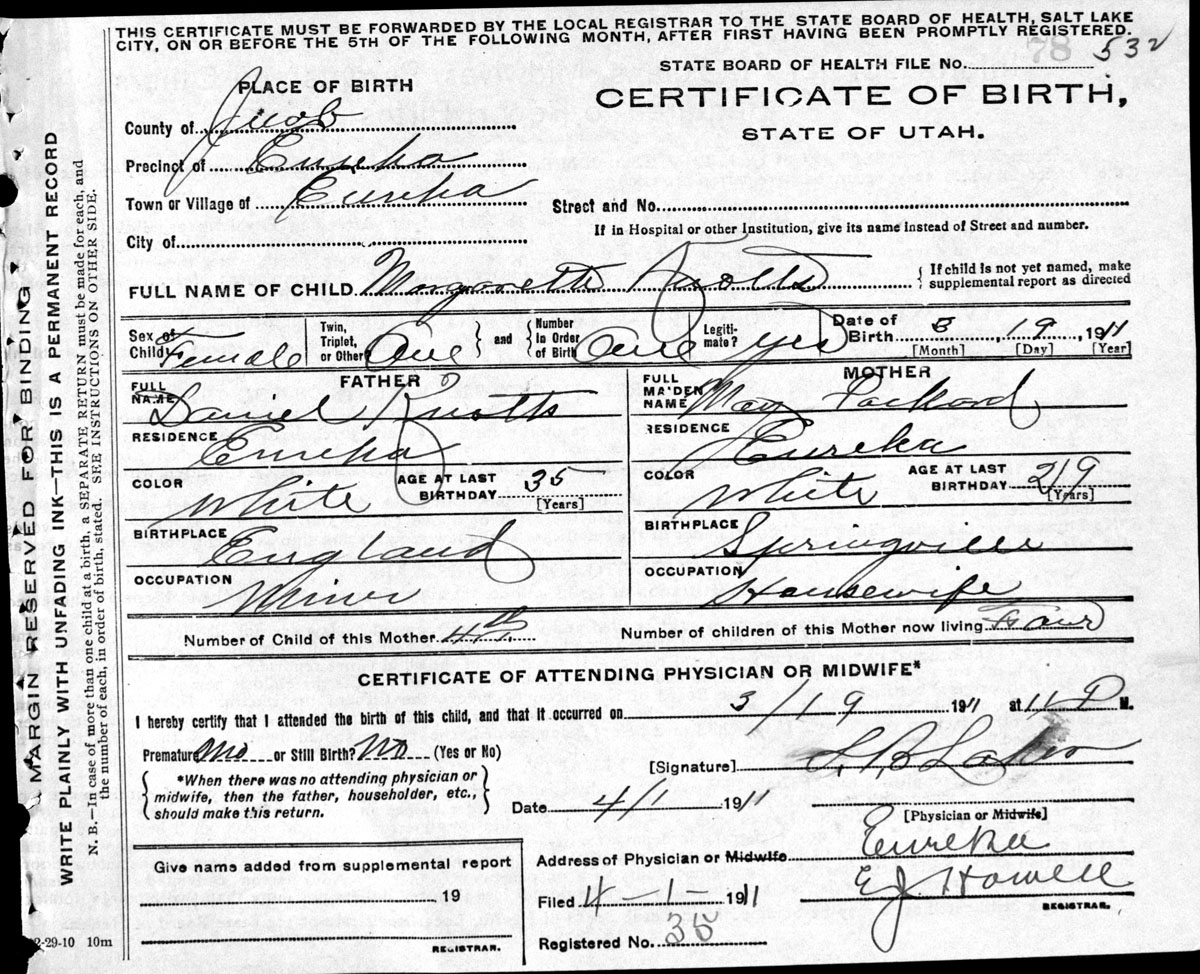 THIS CERTIFICATE MUST BE FORWARDED BY THE LOCAL REGISTRAR TO THE STATE BOARD OF HEALTH, SALT LAKE
CITY, ON OR BEFORE THE 5TH OF THE FOLLOWING MONTH, AFTER FIRST HAVING BEEN PROMPTLY REGISTERED.
78
STATE BOARD OF HEALTH FILE NO. 532
PLACE OF BIRTH
CERTIFICATE OF BIRTH,
STATE OF UTAH.
County of Juab
Precinct of Eureka
Town or Village of Eureka
Street and No.
City of
If in Hospital or other Institution, give its name instead of Street and number.
FULL NAME OF CHILD Margarette Knotts
{ If child is not yet named, make
supplemental report as directed
Sex of
Child Female
Twin,
Triplet,
or Other One } and { Number
In Order
of Birth One
Legiti-
mate? yes
Date of
Birth 3, 19, 1911
[Month] [Day] [Year]
FATHER
FULL
NAME Daniel Knotts
RESIDENCE Eureka
COLOR White
AGE AT LAST
BIRTHDAY 35
[Years]
BIRTHPLACE England
OCCUPATION Miner
MOTHER
FULL
MAIDEN
NAME May Packard
RESIDENCE Eureka
COLOR White
AGE AT LAST
BIRTHDAY 29
[Years]
BIRTHPLACE Springville
OCCUPATION Housewife
Number of Child of this Mother 4th
Number of children of this Mother now living Four
CERTIFICATE OF ATTENDING PHYSICIAN OR MIDWIFE*
I hereby certify that I attended the birth of this child, and that it occurred on 3/19 1911 at 11 P M.
Premature No or Still Birth? No (Yes or No)
{ *When there was no attending physician or
midwife, then the father, householder, etc.,
should make this return. }
[Signature]
Date 4/1 1911
[Physician or Midwife]
Give name added from supplemental report
19
REGISTRAR.
Address of Physician or Midwife Eureka
Filed 4-1-1911 E J Howell
REGISTRAR.
Registered No. 35
2-29-10 10m
MARGIN RESERVED FOR BINDING
WRITE PLAINLY WITH UNFADING INK—THIS IS A PERMANENT RECORD
N. B.—In case of more than one child at a birth, a SEPARATE RETURN must be made for each, and
the number of each, in order of birth, stated. SEE INSTRUCTIONS ON OTHER SIDE.